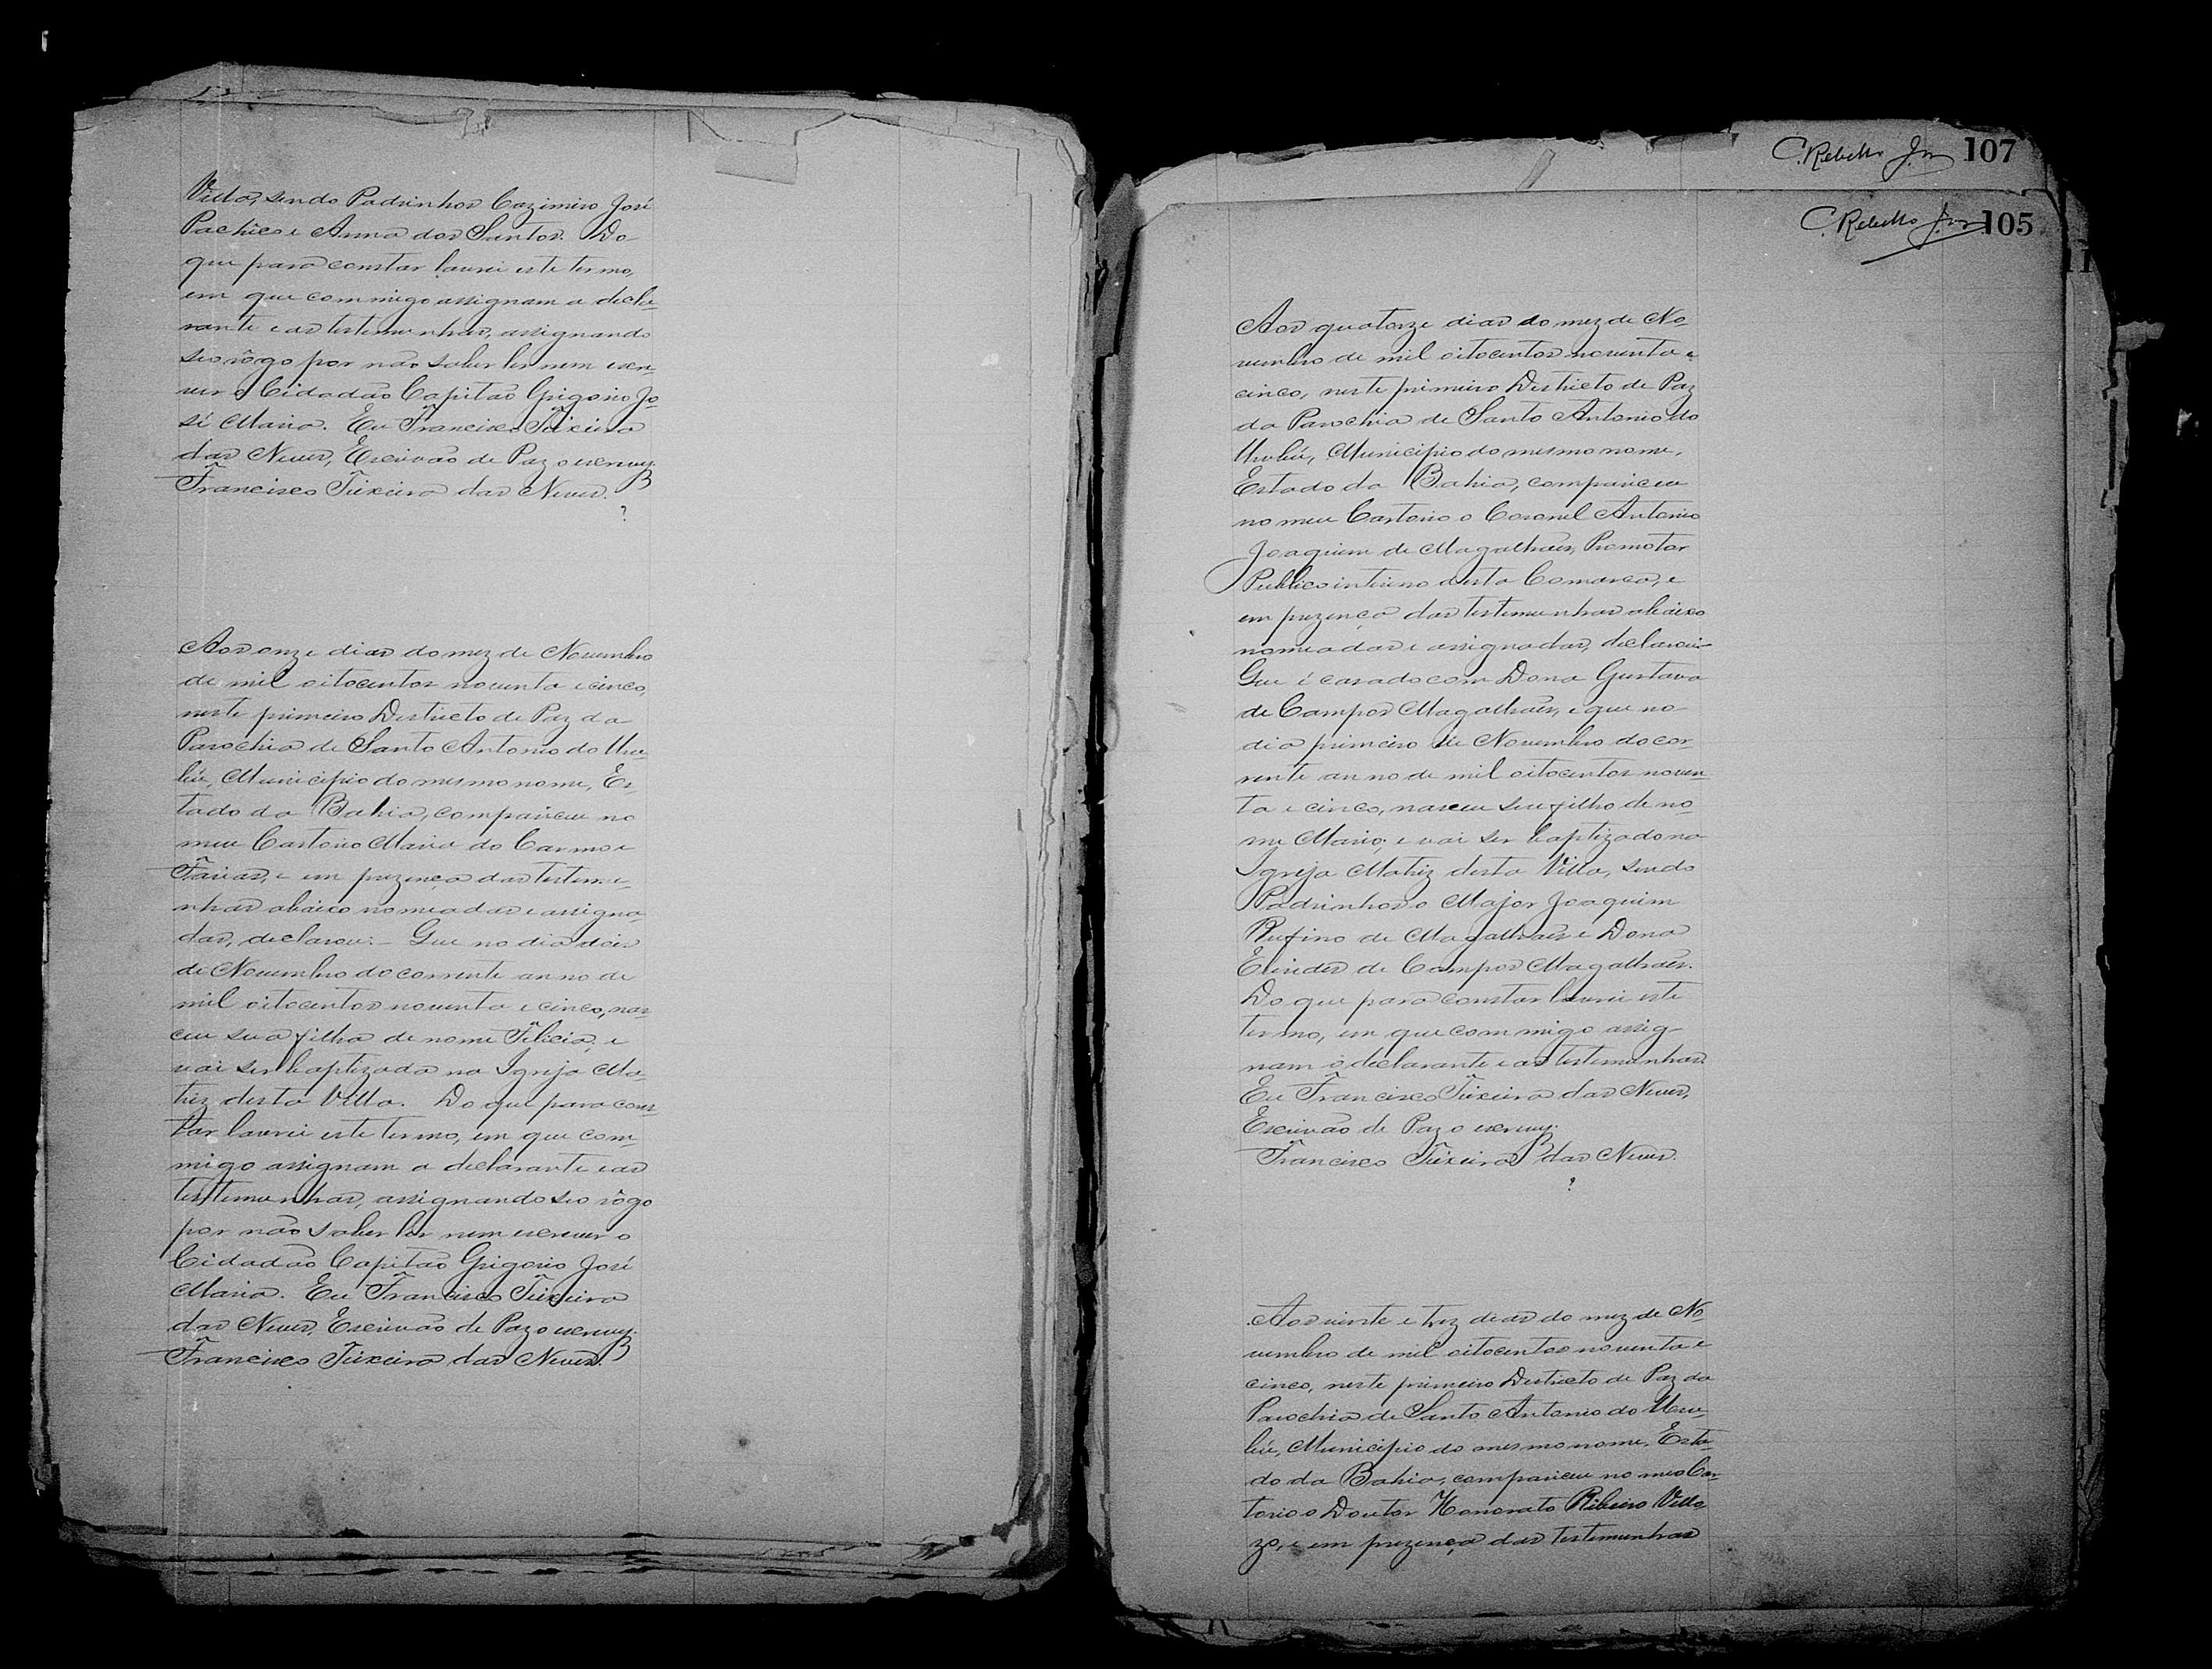 Villa, sendo Padrinhos Cazimiro José
Pachêco e Anna dos Santos. Do
que para constar lavrei este termo,
em que commigo assignam a decla-
rante e as testemunhas, assignando
seo rôgo por não saber ler nem escre-
ver o Cidadão Capitão Grigorio Jo-
sé Maria. Eu Francisco Teixeira
das Neves, Escrivão de Paz o escrevy.
Francisco Teixeira das Neves.
Aos onze dias do mez de Novembro
de mil oitocentos noventa e cinco,
neste primeiro Destricto de Paz da
Parochia de Santo Antonio do Uru-
bú, Municipio do mesmo nome, Es-
tado da Bahia, compareceu no
meu Cartorio Maria do Carmo e
Farias, e em prezença das testemu-
nhas abaixo nomeadas e assigna-
das, declarou:- Que no dia dois
de Novembro do corrente anno de
mil oitocentos noventa e cinco, nas-
ceu sua filha de nome Felicia, e
vai ser baptizada na Igreja Ma-
triz desta Villa. Do que para cons-
tar lavrei este termo, em que com-
migo assignam a declarante e as
testemunhas, assignando seo rôgo
por não saber ler nem escrever o
Cidadão Capitão Grigorio José
Maria. Eu Francisco Teixeira
das Neves, Escrivão de Paz o escrevy.
Francisco Teixeira das Neves.
C. Rebello Jor 107
C. Rebello Jor 105
Aos quatorze dias do mez de No-
vembro de mil oitocentos noventa e
cinco, neste primeiro Destricto de Paz
da Parochia de Santo Antonio do
Urubú, Municipio do mesmo nome,
Estado da Bahia, compareceu
no meu Cartorio o Coronel Antonio
Joaquim de Magalhães, Promotor
Publico interino desta Comarca, e
em prezença das testemunhas abaixo
nomeadas e assignadas, declarou:-
Que é casado com Dona Gustava
de Campos Magalhães, e que no
dia primeiro de Novembro do cor-
rente anno de mil oitocentos noven-
ta e cinco, nasceu seu filho de no-
me Mario; e vai ser baptizado na
Igreja Matriz desta Villa, sendo
Padrinhos o Major Joaquim
Rufino de Magalhães e Dona
de Campos Magalhães.
Do que para constar lavrei este
termo, em que commigo assig-
nam o declarante e as testemunhas.
Eu Francisco Teixeira das Neves,
Escrivão de Paz o escrevy.
Francisco Teixeira das Neves.
Aos vinte e trez dias do mez de No-
vembro de mil oitocentos noventa e
cinco, neste primeiro Destricto de Paz da
Parochia de Santo Antonio do Uru-
bú, Municipio do mesmo nome, Esta-
do da Bahia, compareceu no meo Car-
torio o Doutor Honorato Ribeiro Vello-
zo, e em prezença das testemunhas